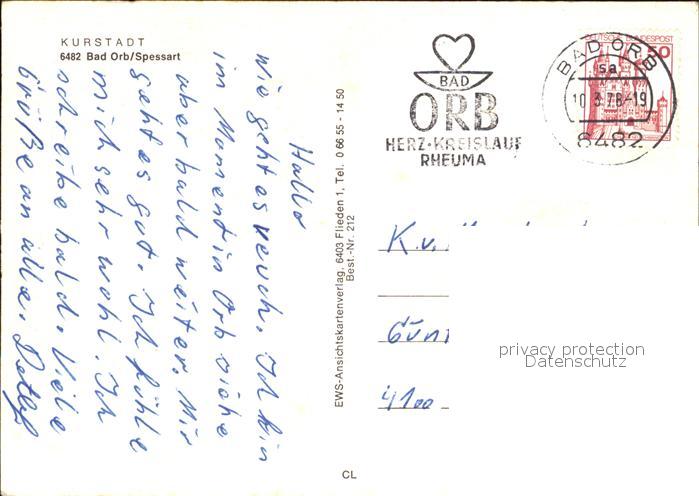 KURSTADT
6482 Bad Orb/Spessart
Hallo
Wie geht es Heuch. Ich bin
im Moment in Orb ziehe
aber bald weiter. Mir
geht es gut. Ich fühle
mich sehr wohl. Ich
schreibe bald. Viele
Grüße an alle. Detlef
EWS-Ansichtskartenverlag, 6403 Flieden 1, Tel. 0 66 55 - 14 50
Best.-Nr. 212
CL
BAD
ORB
HERZ-KREISLAUF
RHEUMA
DEUTSCHE BUNDESPOST
50
BAD ORB
sa
10.3.78-19
6482
K.u.
Gün
4100
privacy protection
Datenschutz